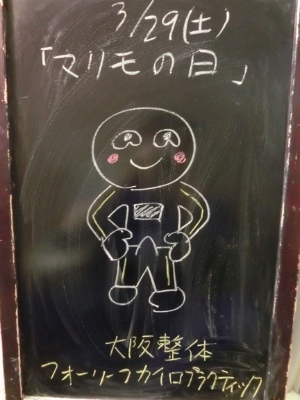 3/29(土)
「マリモの日」
大阪整体
フォーリーフカイロプラクティック